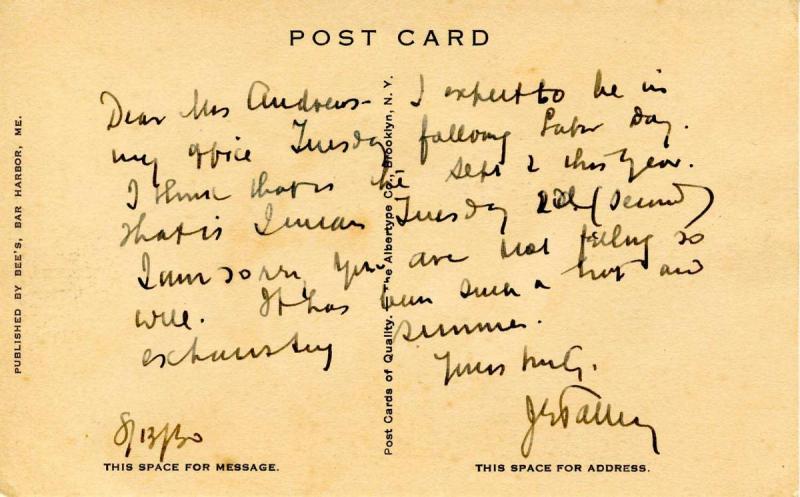 POST CARD
Dear Mrs Andrews- I expect to be in
my office Tuesday following Labor Day.
I think that is the Sept 2 this year.
That is I mean Tuesday 2d (second)
I am sorry you are not feeling so
well. It has been such a hot and
exhausting summer.
Yours truly.
8/13/30
THIS SPACE FOR MESSAGE.
THIS SPACE FOR ADDRESS.
PUBLISHED BY BEE'S, BAR HARBOR, ME.
Post Cards of Quality. The Albertype Co., Brooklyn, N. Y.